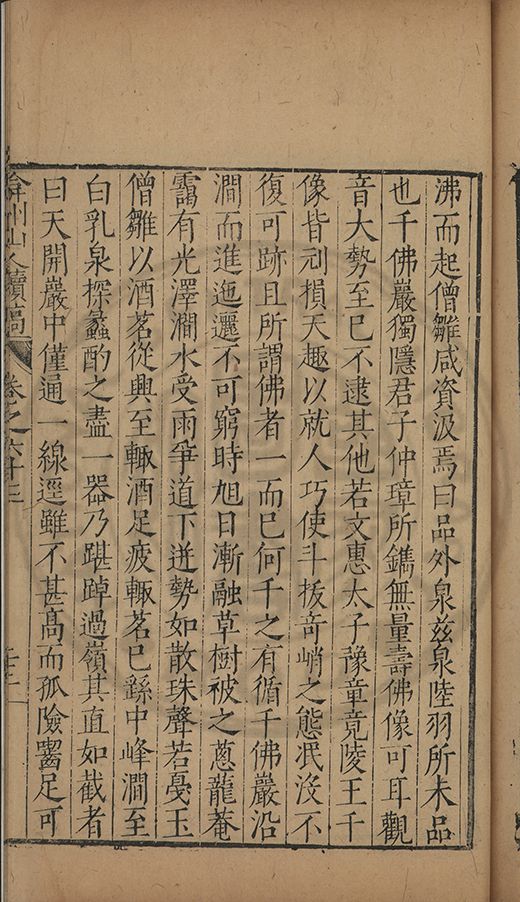 沸而起僧雛咸資汲焉曰品外泉兹泉陸羽所未品
也千佛巖獨隱君子仲璋所鐫無量壽佛像可耳觀
音大勢至已不逮其他若文惠太子豫章竟陵王千
像皆刓損天趣以就人巧使斗拔竒峭之態泯沒不
復可跡且所謂佛者一而已何千之有循千佛巖沿
澗而進迤邐不可窮時旭日漸融草樹被之蔥蘢菴
靄有光澤澗水受雨爭道下迸勢如散珠聲若戞玉
僧雛以酒茗從興至輙酒足疲輙茗已繇中峰澗至
白乳泉探蠡酌之盡一器乃踸踔過嶺其直如截者
曰天開巖中僅通一線逕雖不甚髙而孤險齧足可
弇州山人續稿
卷之六十三